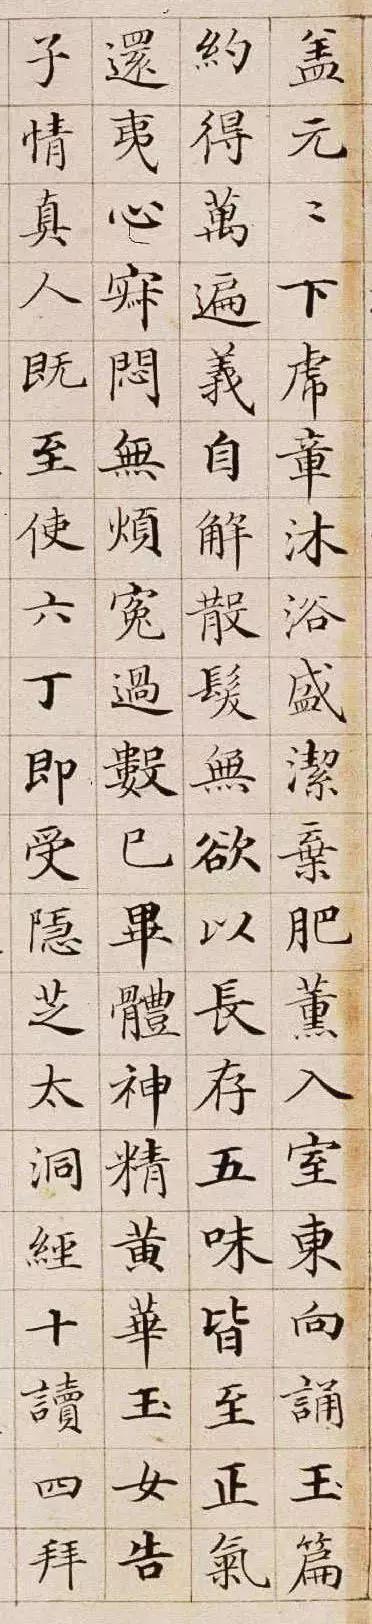 盖元〻下虎章沐浴盛潔棄肥薰入室東向誦玉篇
約得萬遍義自解散髮無欲以長存五味皆至正氣
還夷心寂悶無煩冤過數已畢體神精黃華玉女告
子情真人既至使六丁即受隱芝太洞經十讀四拜